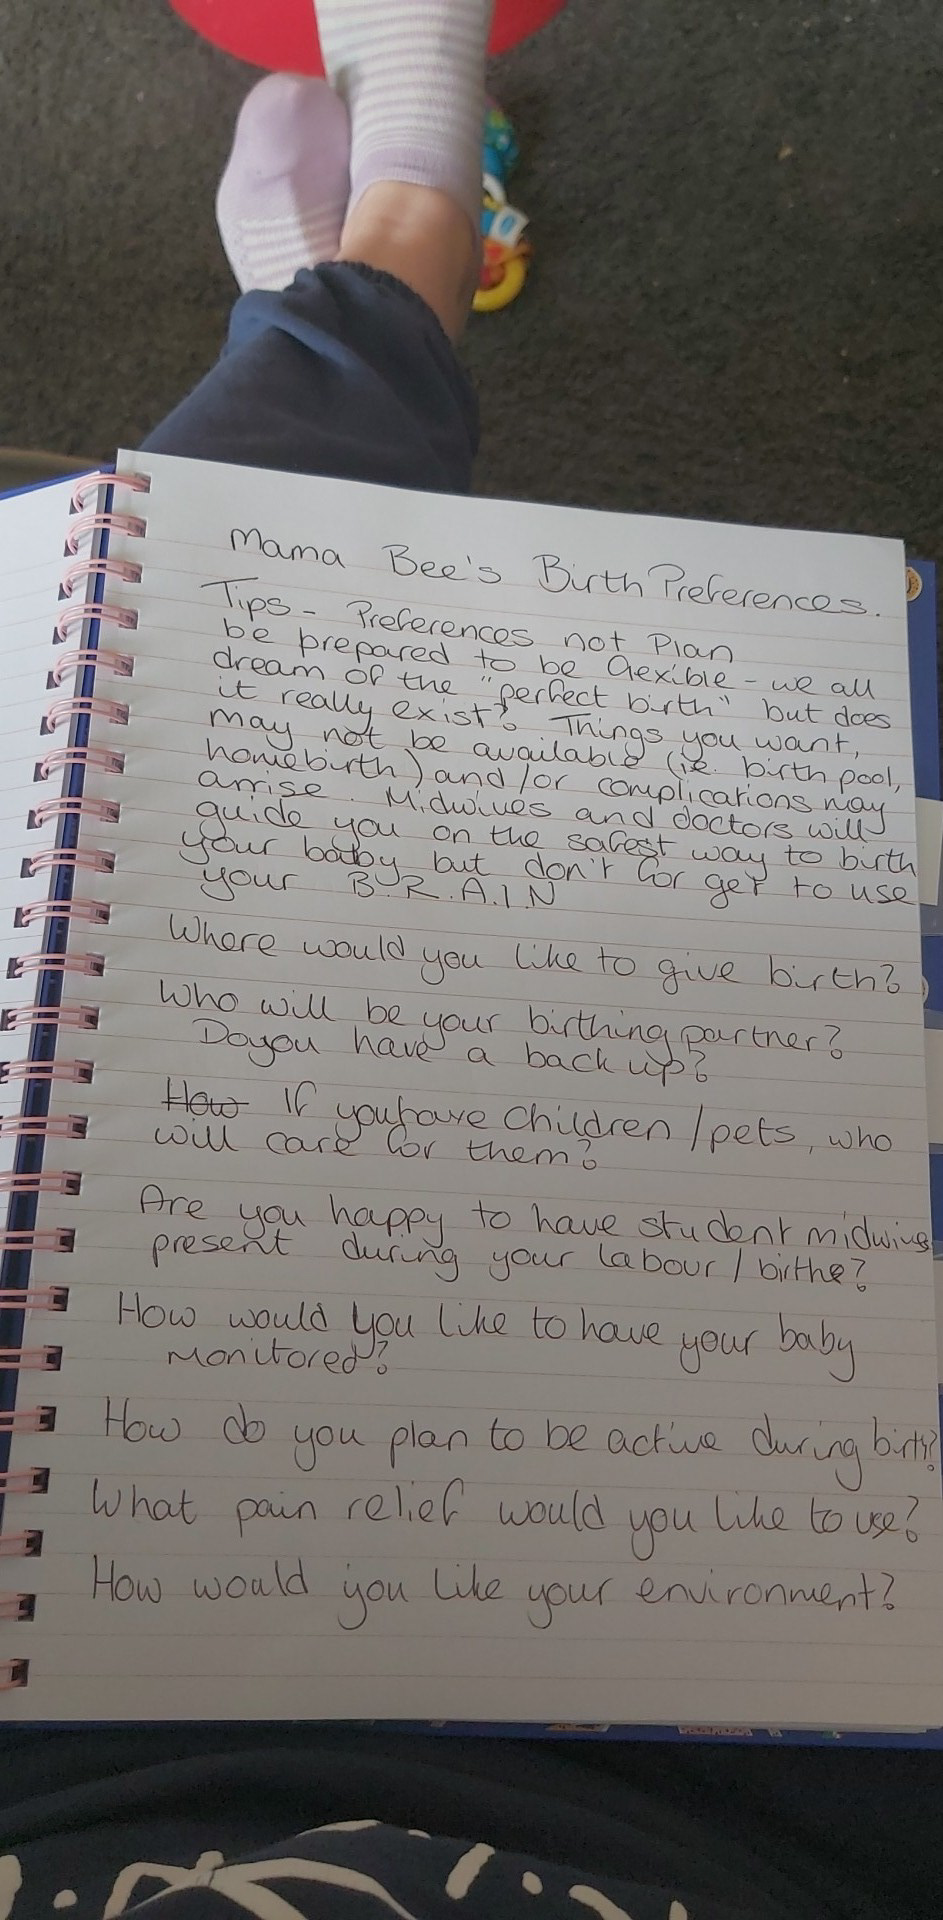 Mama Bee's Birth Preferences.
Tips - Preferences not Plan
be prepared to be flexible - we all
dream of the "perfect birth" but does
it really exist? Things you want,
may not be available (ie. birth pool,
homebirth) and/or complications may
arrise. Midwives and doctors will
guide you on the safest way to birth
your baby but don't for get to use
your B.R.A.I.N
Where would you like to give birth?
Who will be your birthing partner?
Do you have a back up?
How If you have children / pets, who
will care for them?
Are you happy to have student midwives
present during your labour / birthe?
How would you like to have your baby
monitored?
How do you plan to be active during birth?
What pain relief would you like to use?
How would you like your environment?